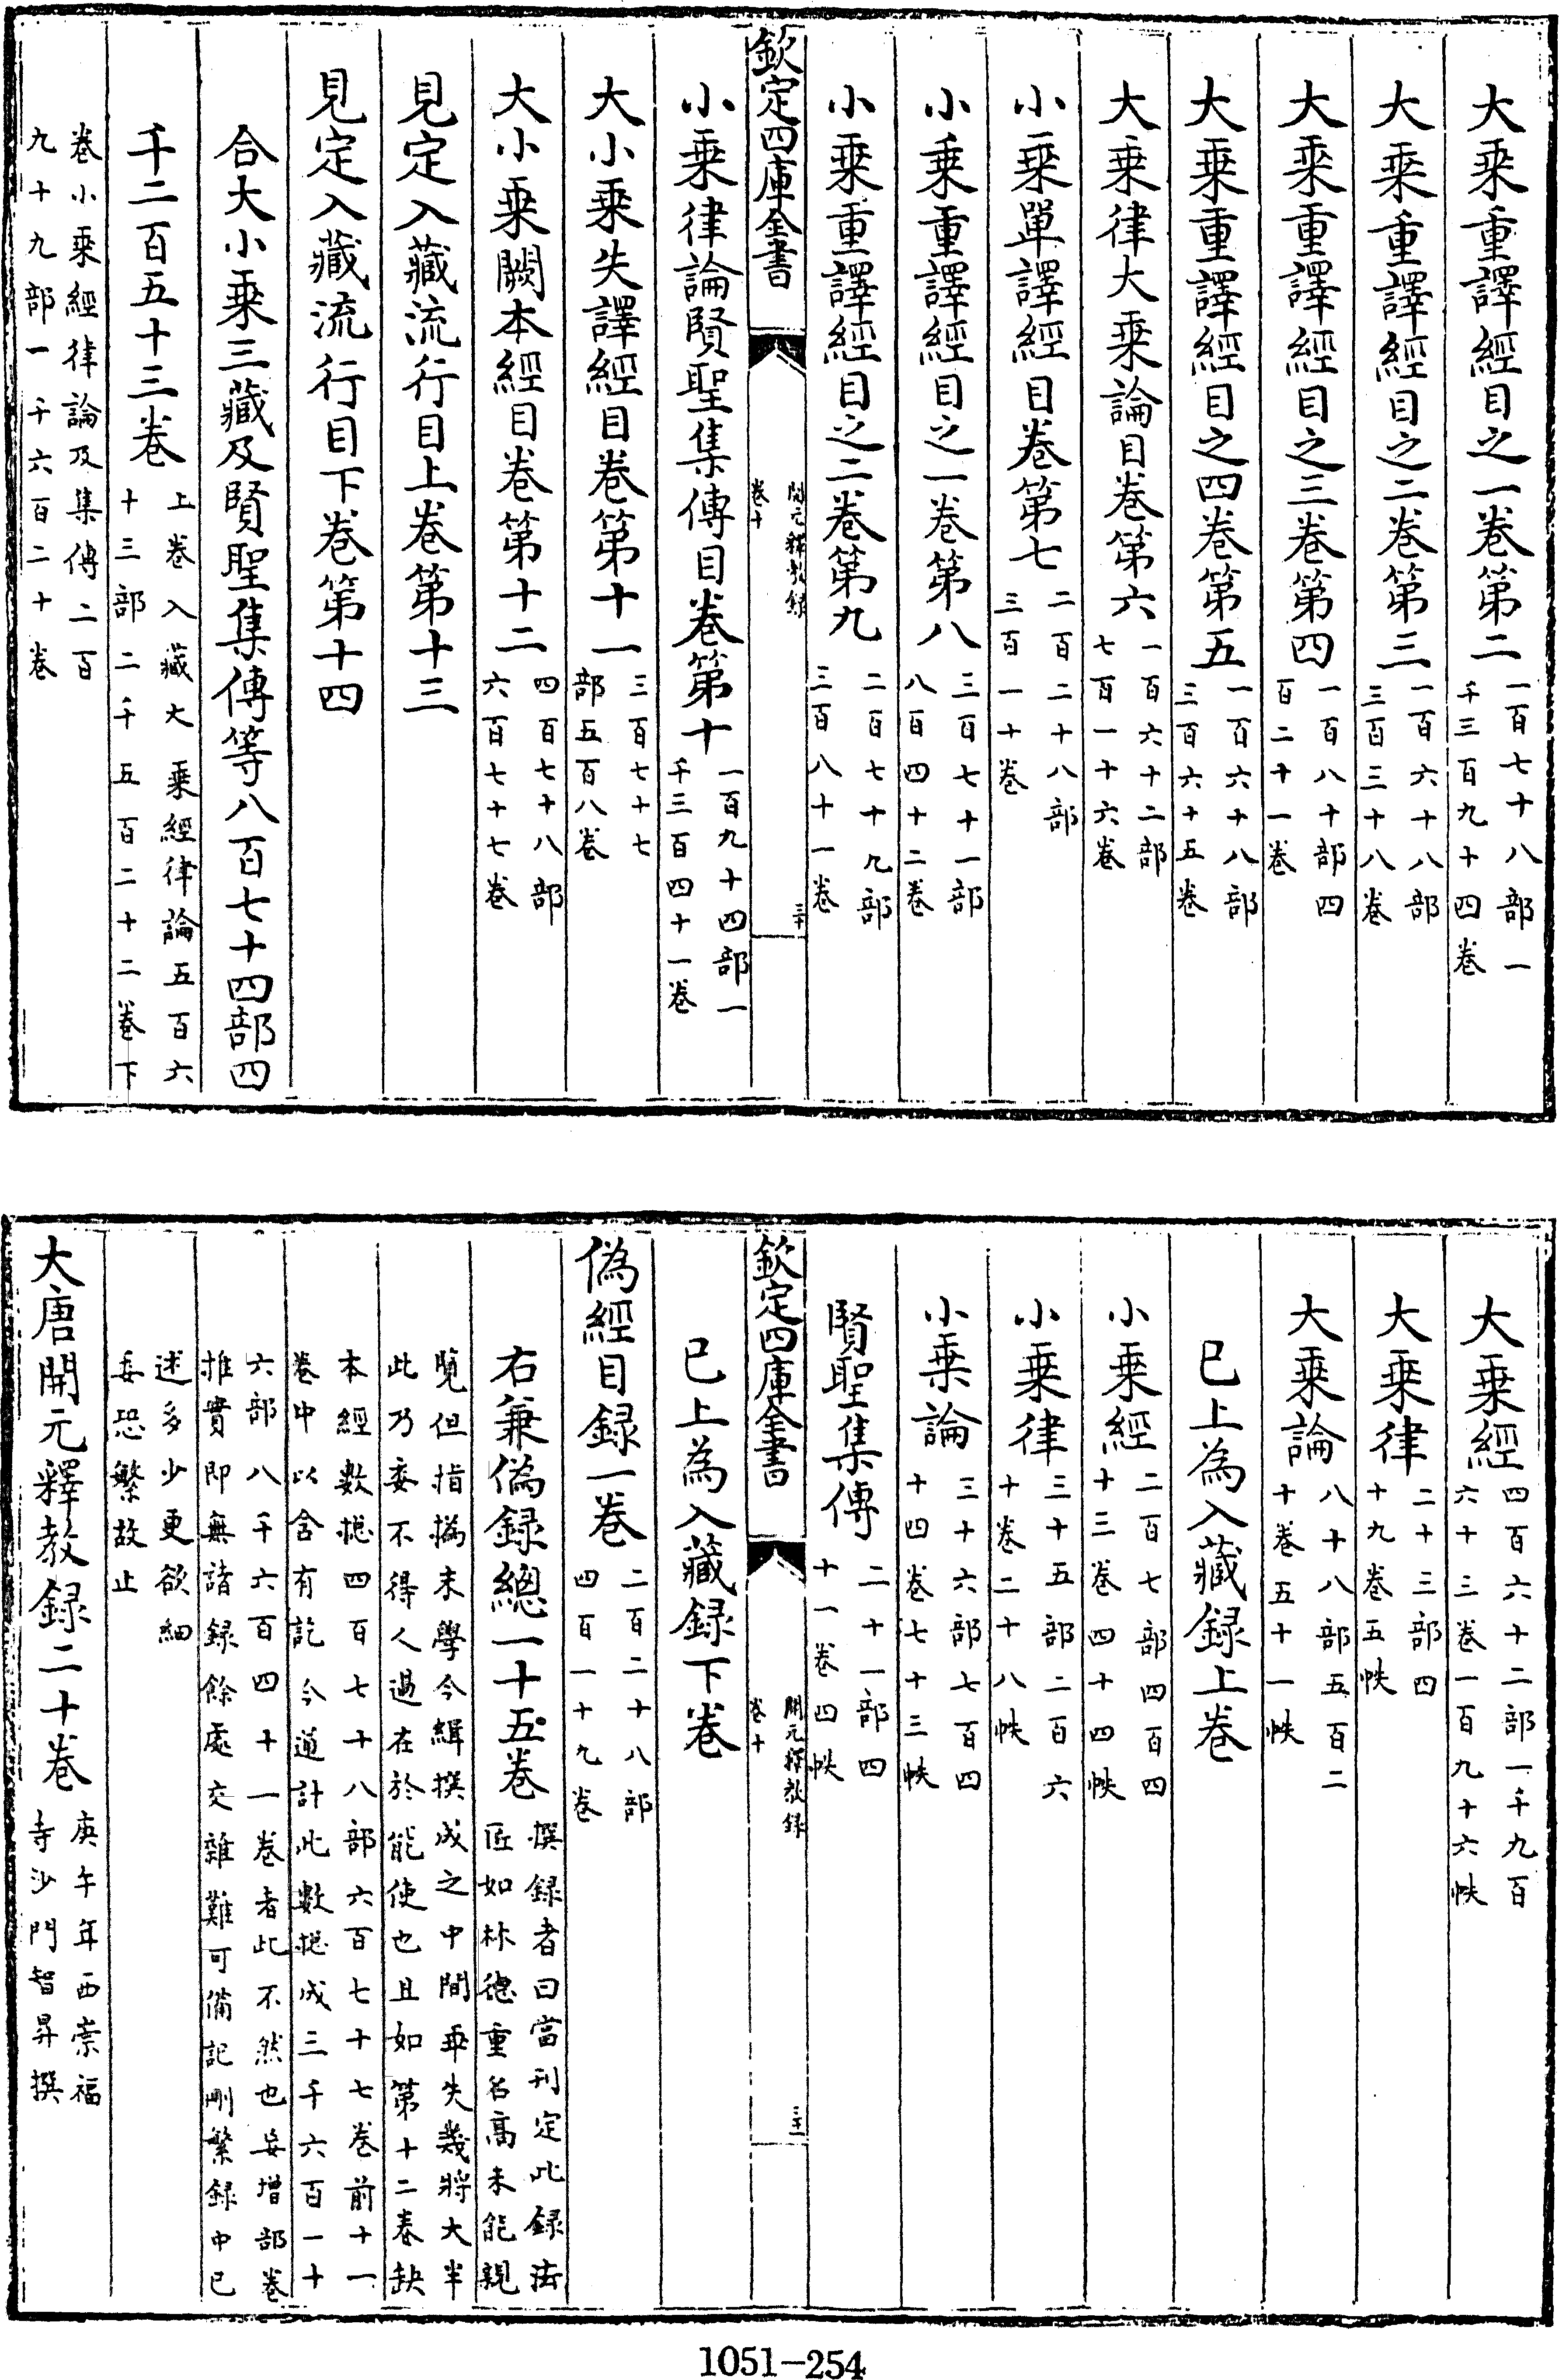 大乘重譯經目之一卷第二一百七十八部一千三百九十四卷
大乘重譯經目之二卷第三一百六十八部三百三十八卷
大乘重譯經目之三卷第四一百八十部四百二十一卷
大乘重譯經目之四卷第五一百六十八部三百六十五卷
大乘律大乘論目卷第六一百六十二部七百一十六卷
小乘單譯經目卷第七二百二十八部三百一十卷
小乘重譯經目之一卷第八三百七十一部八百四十二卷
小乘重譯經目之二卷第九二百七十九部三百八十一卷
欽定四庫全書
開元釋教錄
卷十
三十
小乘律論賢聖集傳目卷第十一百九十四部一千三百四十一卷
大小乘失譯經目卷第十一三百七十七部五百八卷
大小乘闕本經目卷第十二四百七十八部六百七十七卷
見定入藏流行目上卷第十三
見定入藏流行目下卷第十四
合大小乘三藏及賢聖集傳等八百七十四部四
千二百五十三卷上卷入藏大乘經律論五百六十三部二千五百二十二卷下
卷小乘經律論及集傳二百九十九部一千六百二十卷
大乘經四百六十二部一千九百六十三卷一百九十六帙
大乘律二十三部四十九卷五帙
大乘論八十八部五百二十卷五十一帙
已上為入藏録上卷
小乘經二百七部四百四十三卷四十四帙
小乘律三十五部二百六十卷二十八帙
小乘論三十六部七百四十四卷七十三帙
賢聖集傳二十一部四十一卷四帙
欽定四庫全書
開元釋教録
卷十
三十一
已上為入藏録下卷
偽經目録一卷二百二十八部四百一十九卷
右兼偽録總一十五卷撰録者曰當刊定此録法匠如林德重名高未能親
覽但指撝末學今緝撰成之中間乖失幾將大半此乃委不得人過在於能使也且如第十二卷缺
本經數揔四百七十八部六百七十七卷前十一卷中以含有訖今道計此數揔成三千六百一十
六部八千六百四十一卷者此不然也妄增部卷推實即無諸録餘處交雜難可備記刪繁録中已
述多少更欲細委恐繁故止
大唐開元釋教録二十卷庚午年西崇福寺沙門智昇撰
1051-254